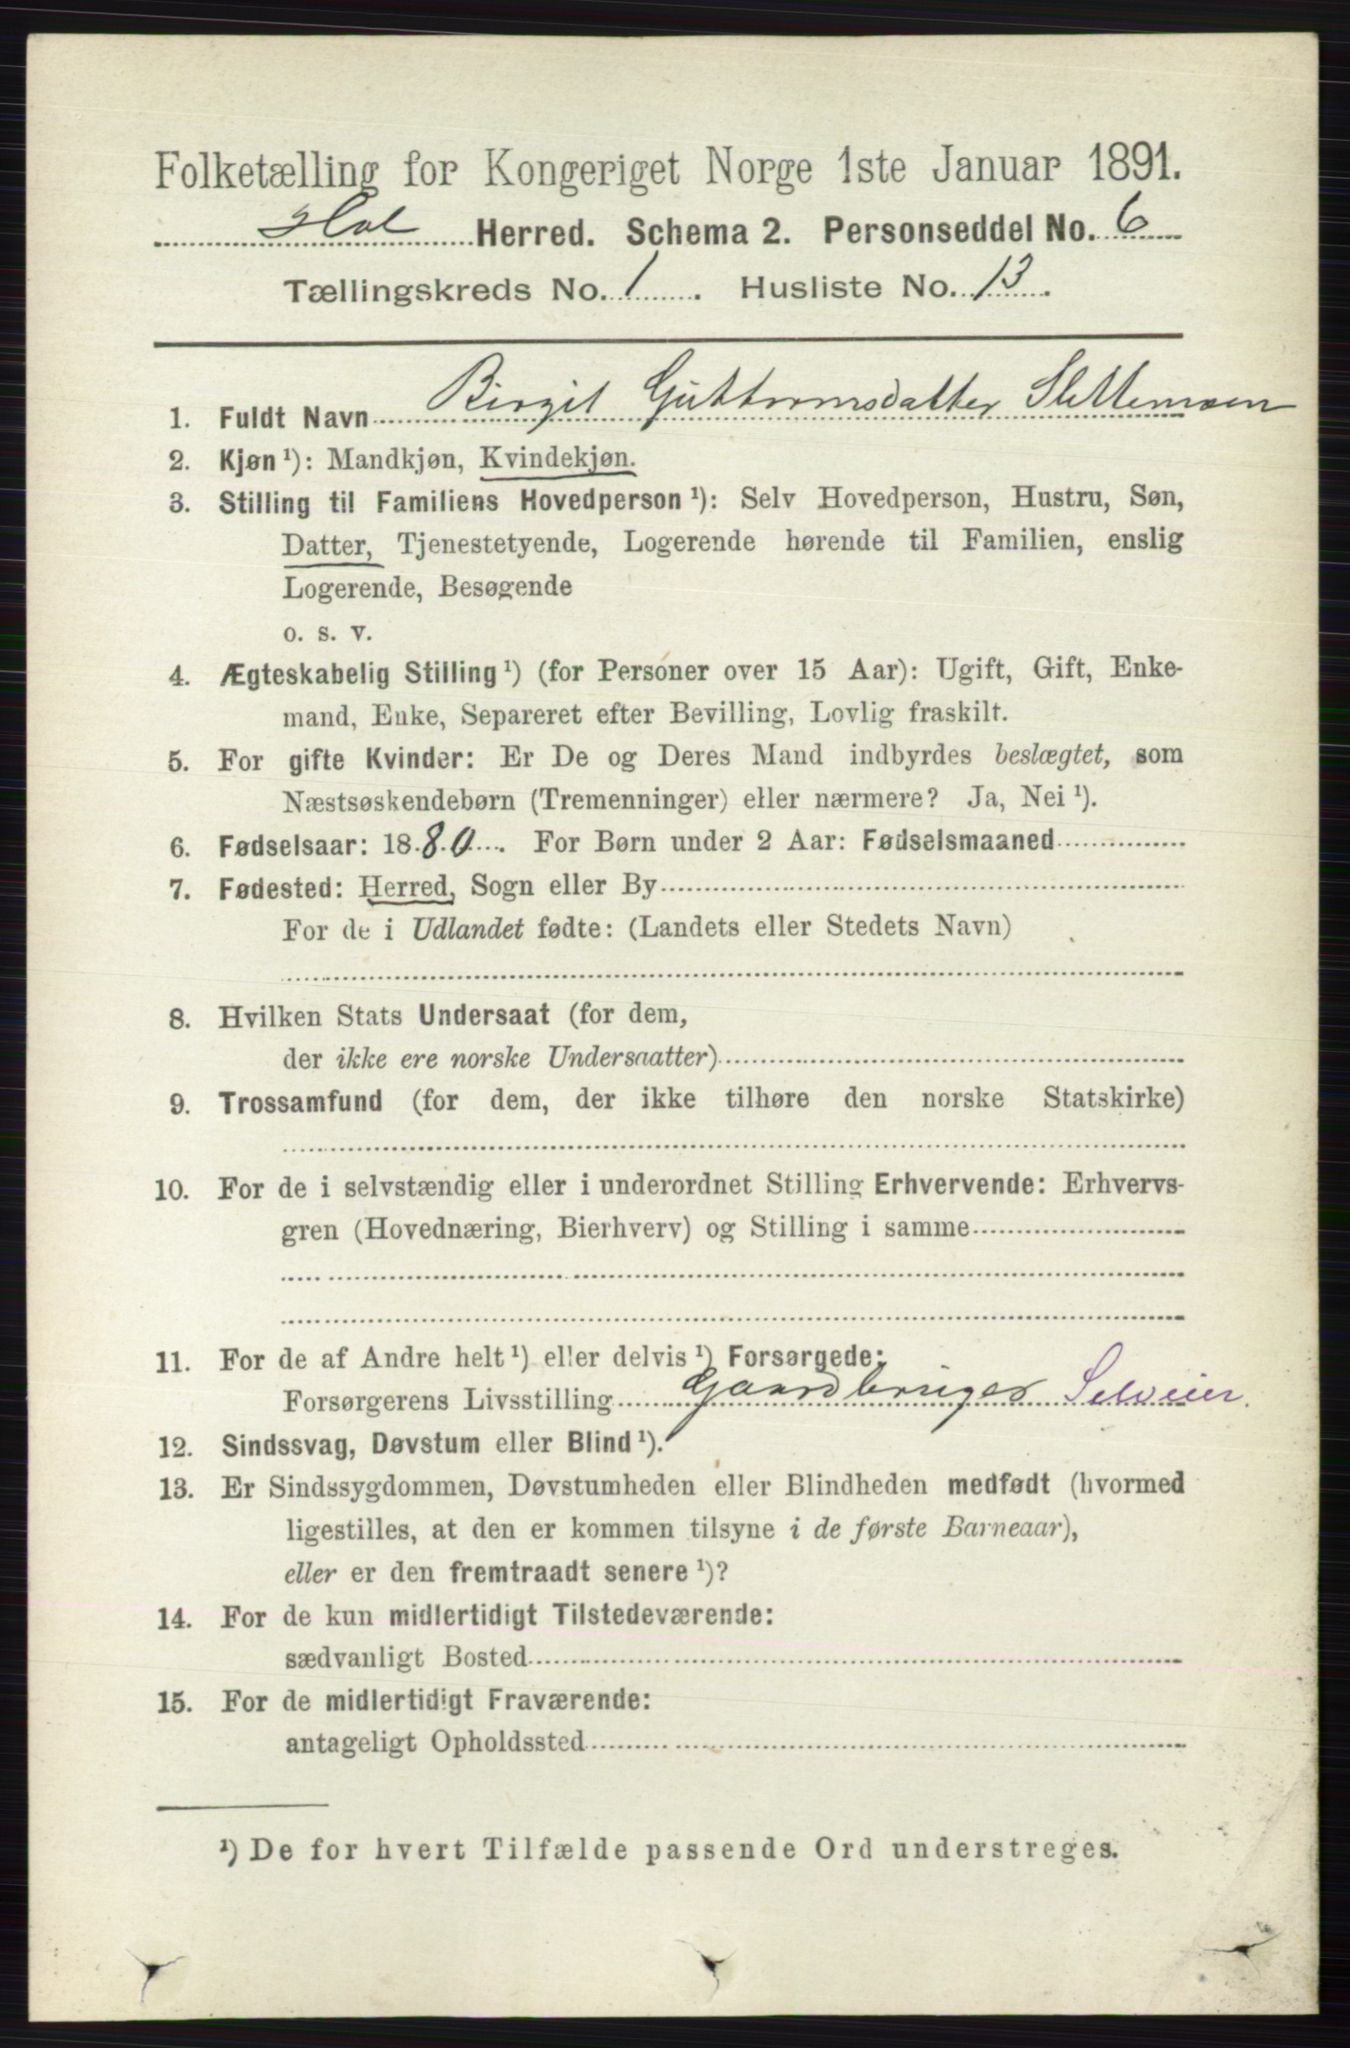 Folketælling for Kongeriget Norge 1ste Januar 1891.
Hol Herred. Schema 2. Personseddel No. 6
Tællingskreds No. 1. Husliste No. 13.
1. Fuldt Navn Birgit Guttormsdatter Slettemoen
2. Kjøn ¹): Mandkjøn, Kvindekjøn.
3. Stilling til Familiens Hovedperson ¹): Selv Hovedperson, Hustru, Søn,
Datter, Tjenestetyende, Logerende hørende til Familien, enslig
Logerende, Besøgende
o. s. v.
4. Ægteskabelig Stilling ¹) (for Personer over 15 Aar): Ugift, Gift, Enke-
mand, Enke, Separeret efter Bevilling, Lovlig fraskilt.
5. For gifte Kvinder: Er De og Deres Mand indbyrdes beslægtet, som
Næstsøskendebørn (Tremenninger) eller nærmere? Ja, Nei ¹).
6. Fødselsaar: 1880. For Børn under 2 Aar: Fødselsmaaned
7. Fødested: Herred, Sogn eller By
For de i Udlandet fødte: (Landets eller Stedets Navn)
8. Hvilken Stats Undersaat (for dem,
der ikke ere norske Undersaatter)
9. Trossamfund (for dem, der ikke tilhøre den norske Statskirke)
10. For de i selvstændig eller i underordnet Stilling Erhvervende: Erhvervs-
gren (Hovednæring, Bierhverv) og Stilling i samme
11. For de af Andre helt ¹) eller delvis ¹) Forsørgede:
Forsørgerens Livsstilling Gaardbruger Selveier.
12. Sindssvag, Døvstum eller Blind ¹).
13. Er Sindssygdommen, Døvstumheden eller Blindheden medfødt (hvormed
ligestilles, at den er kommen tilsyne i de første Barneaar),
eller er den fremtraadt senere ¹)?
14. For de kun midlertidigt Tilstedeværende:
sædvanligt Bosted
15. For de midlertidigt Fraværende:
antageligt Opholdssted
¹) De for hvert Tilfælde passende Ord understreges.